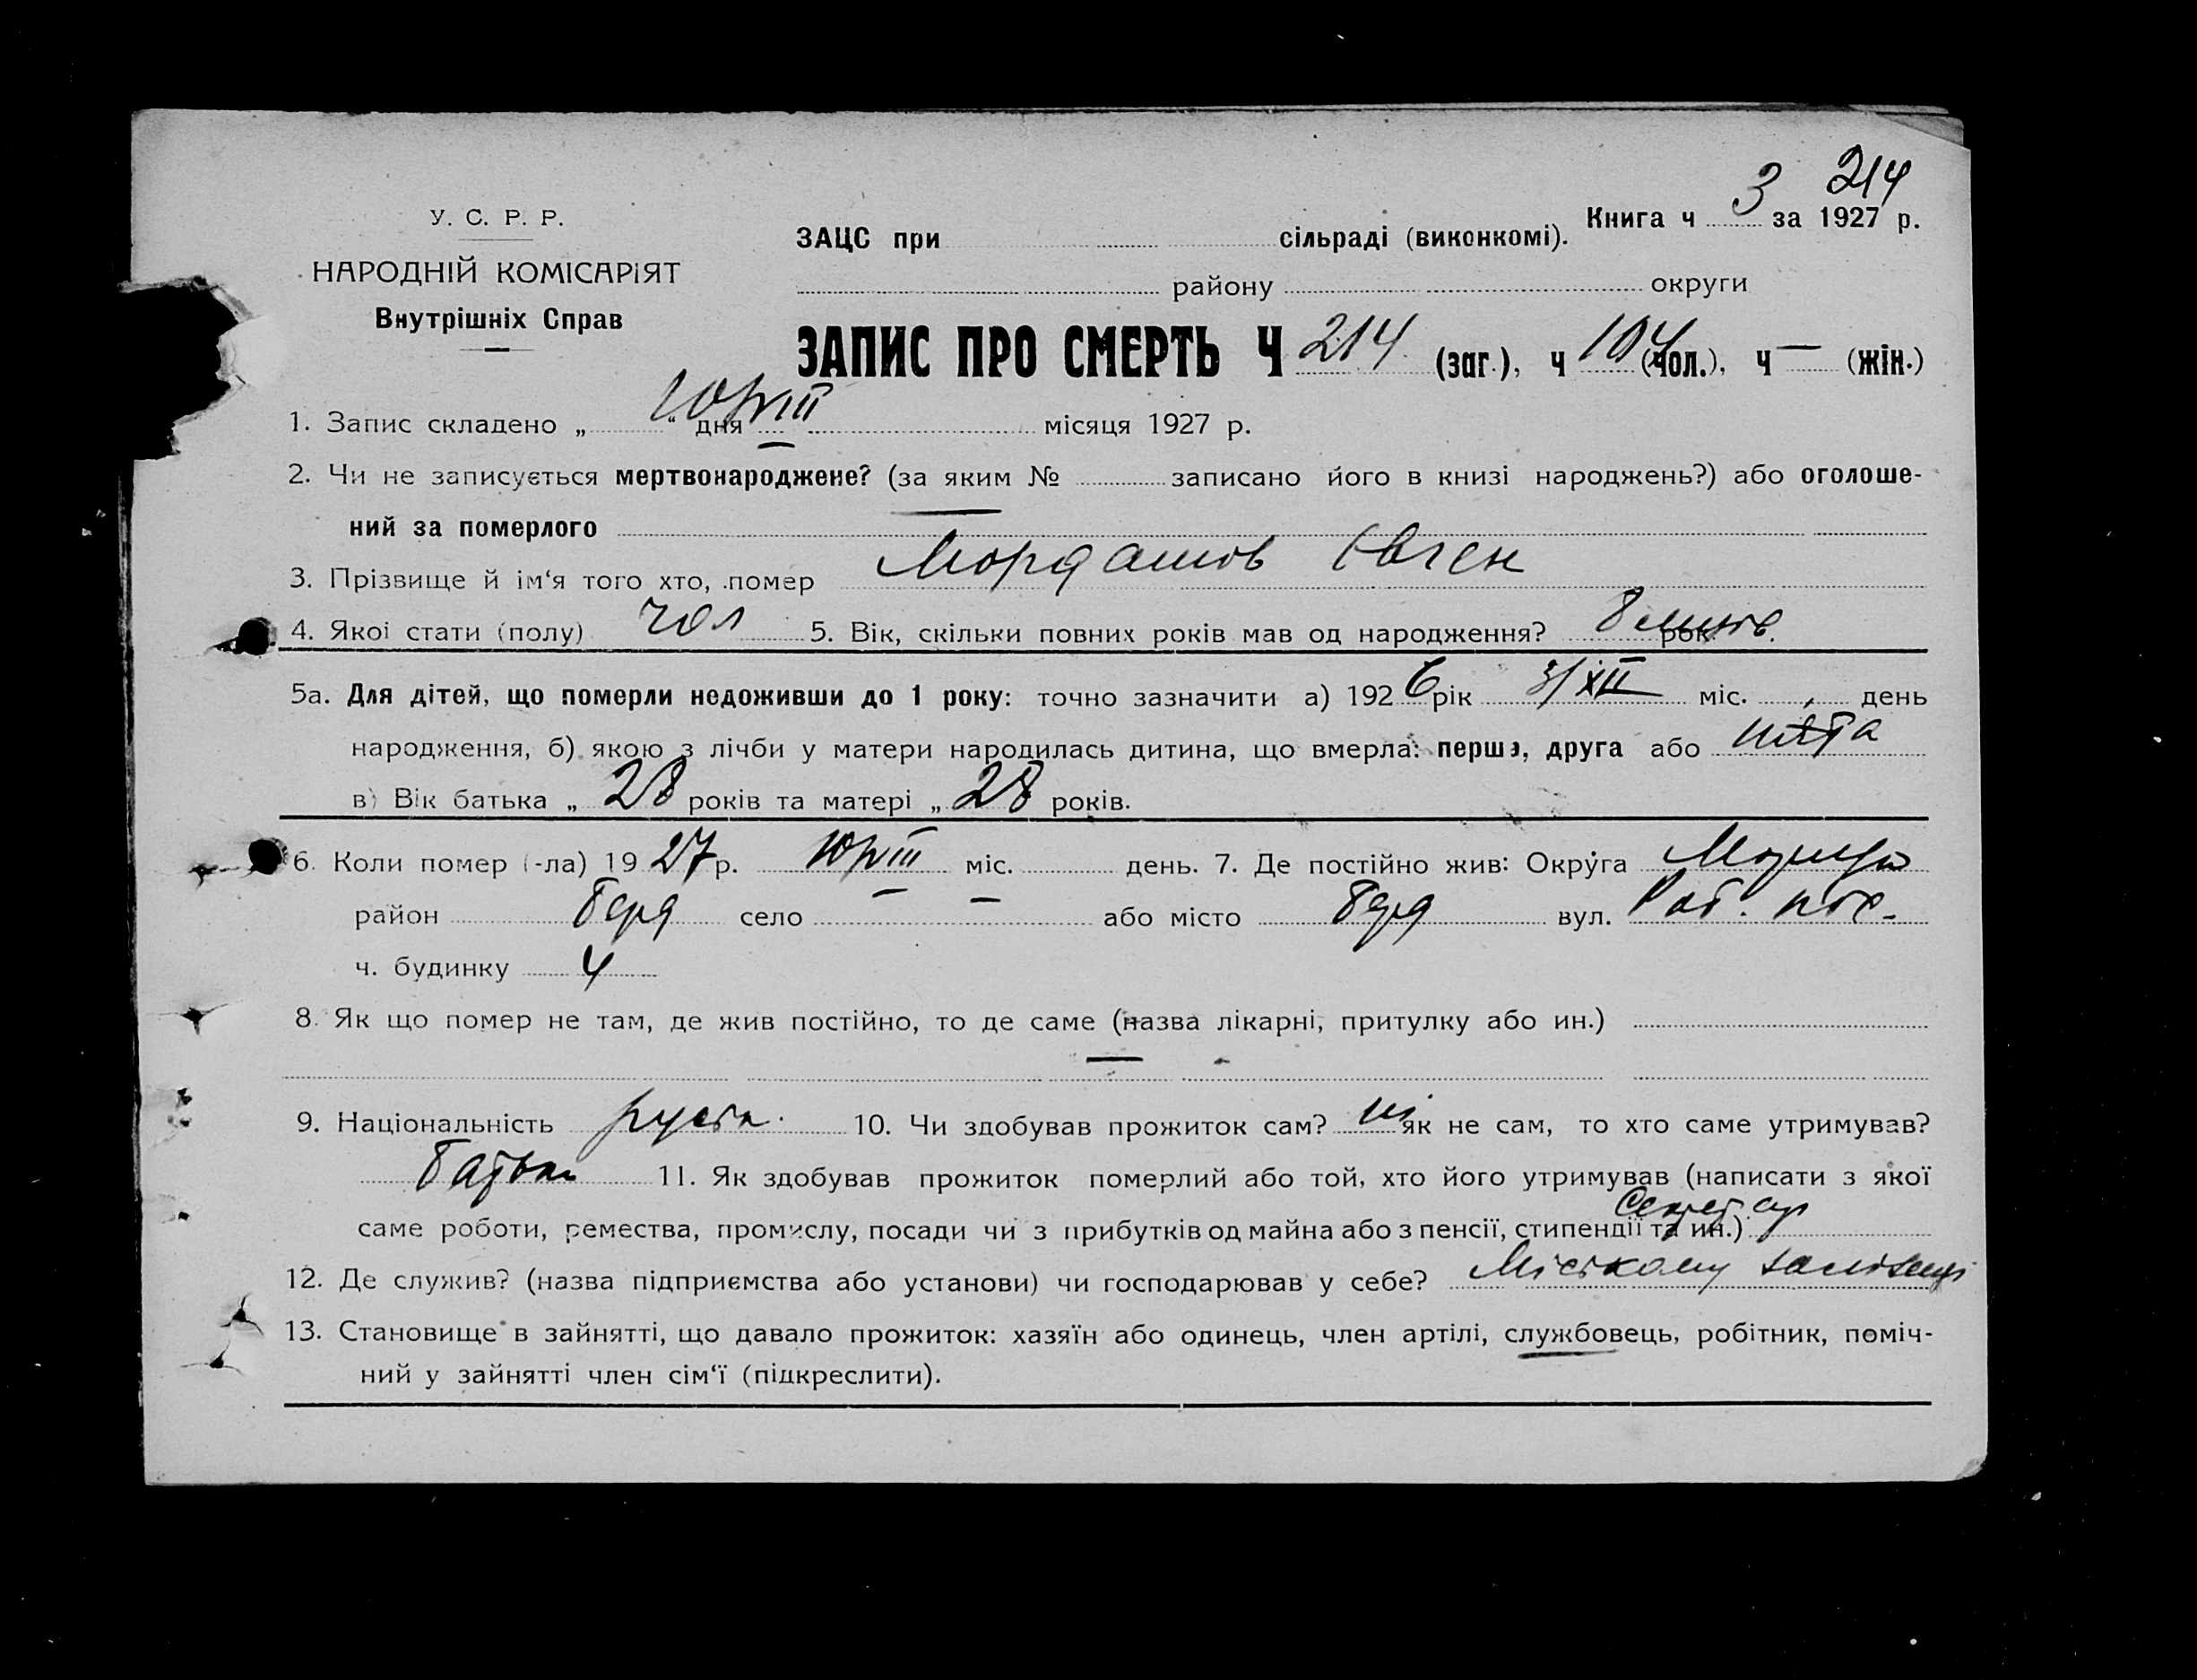 214
У. С. Р. Р.
НАРОДНІЙ КОМІСАРІЯТ
Внутрішніх Справ
Книга ч 3 за 1927 р.
ЗАЦС при сільраді (виконкомі).
району округи
ЗАПИС ПРО СМЕРТЬ Ч 214 (заг.), ч 104 (чол.), ч — (жін.)
1. Запис складено „ “ дня місяця 1927 р.
2. Чи не записується мертвонароджене? (за яким № записано його в книзі народжень?) або оголоше-
ний за померлого —
3. Прізвище й ім‘я того хто, помер Мордашов Євген
4. Якої стати (полу) чол 5. Вік, скільки повних років мав од народження? рок.
5а. Для дітей, що померли недоживши до 1 року: точно зазначити а) 1926 рік 3/XII міс. день
народження, б) якою з лічби у матери народилась дитина, що вмерла: перша, друга або п'ята
в) Вік батька „ 28 років та матері „ 28 років.
6. Коли помер (-ла) 1927 р. міс. день. 7. Де постійно жив: Округа
район Берд село — — або місто Берд вул. Роб.
ч. будинку 4
8. Як що помер не там, де жив постійно, то де саме (назва лікарні, притулку або ин.)
—
9. Національність 10. Чи здобував прожиток сам? ні як не сам, то хто саме утримував?
Батько 11. Як здобував прожиток померлий або той, хто його утримував (написати з якої
саме роботи, ремества, промислу, посади чи з прибутків од майна або з пенсії, стипендії та ин.) Секретар
12. Де служив? (назва підприємства або установи) чи господарював у себе? Міськкому
13. Становище в зайнятті, що давало прожиток: хазяїн або одинець, член артілі, службовець, робітник, поміч-
ний у зайнятті член сім‘ї (підкреслити).